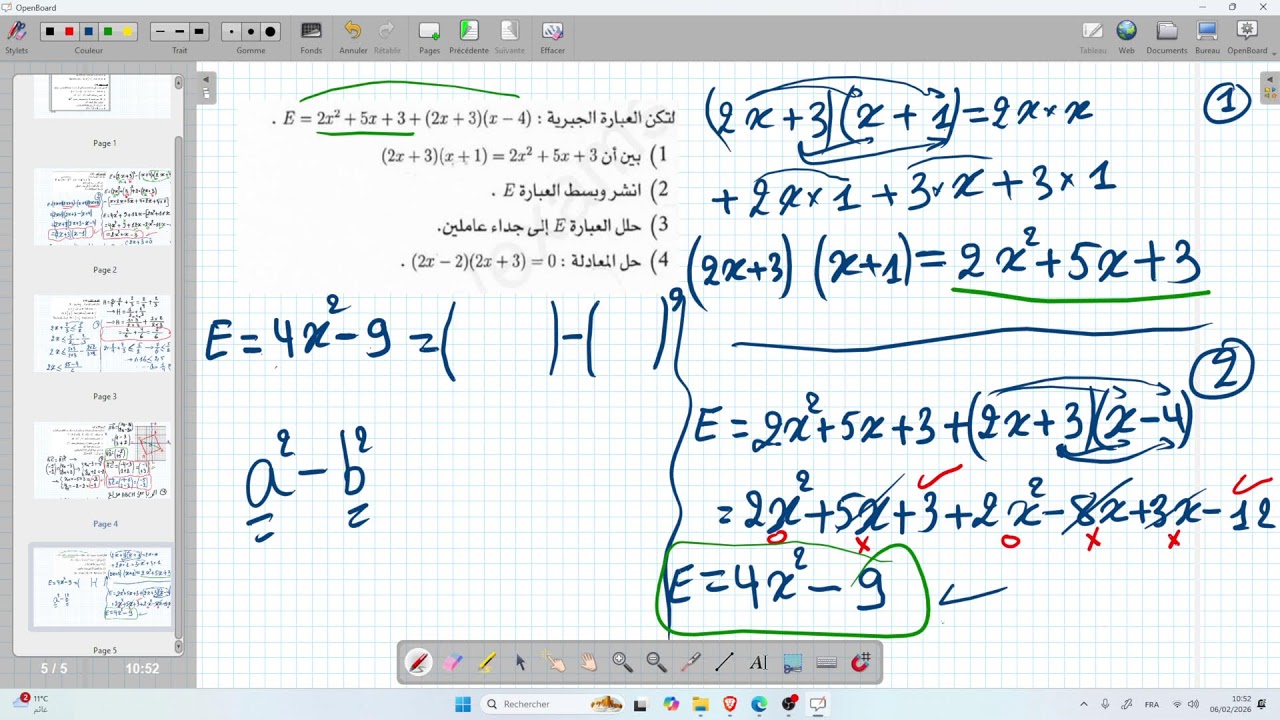 OpenBoard
Stylets Couleur Trait Gomme Fonds Annuler Rétablir Pages Précédente Suivante Effacer Tableau Web Documents Bureau OpenBoard
Page 1
Page 2
Page 3
Page 4
Page 5
5 / 5 10:52
لتكن العبارة الجبرية : E = 2x² + 5x + 3 + (2x + 3)(x − 4) .
1) بين أن (2x + 3)(x + 1) = 2x² + 5x + 3
2) انشر وبسط العبارة E .
3) حلل العبارة E إلى جداء عاملين.
4) حل المعادلة : (2x − 2)(2x + 3) = 0 .
E = 4x² − 9 = ( ) − ( )²
a² − b²
1
(2x + 3)(x + 1) = 2x × x
+ 2x × 1 + 3 × x + 3 × 1
(2x + 3) (x + 1) = 2x² + 5x + 3
2
E = 2x² + 5x + 3 + (2x + 3)(x − 4)
= 2x² + 5x + 3 + 2x² − 8x + 3x − 12
E = 4x² − 9
2
11°C
Rechercher
FRA
10:52
06/02/2026